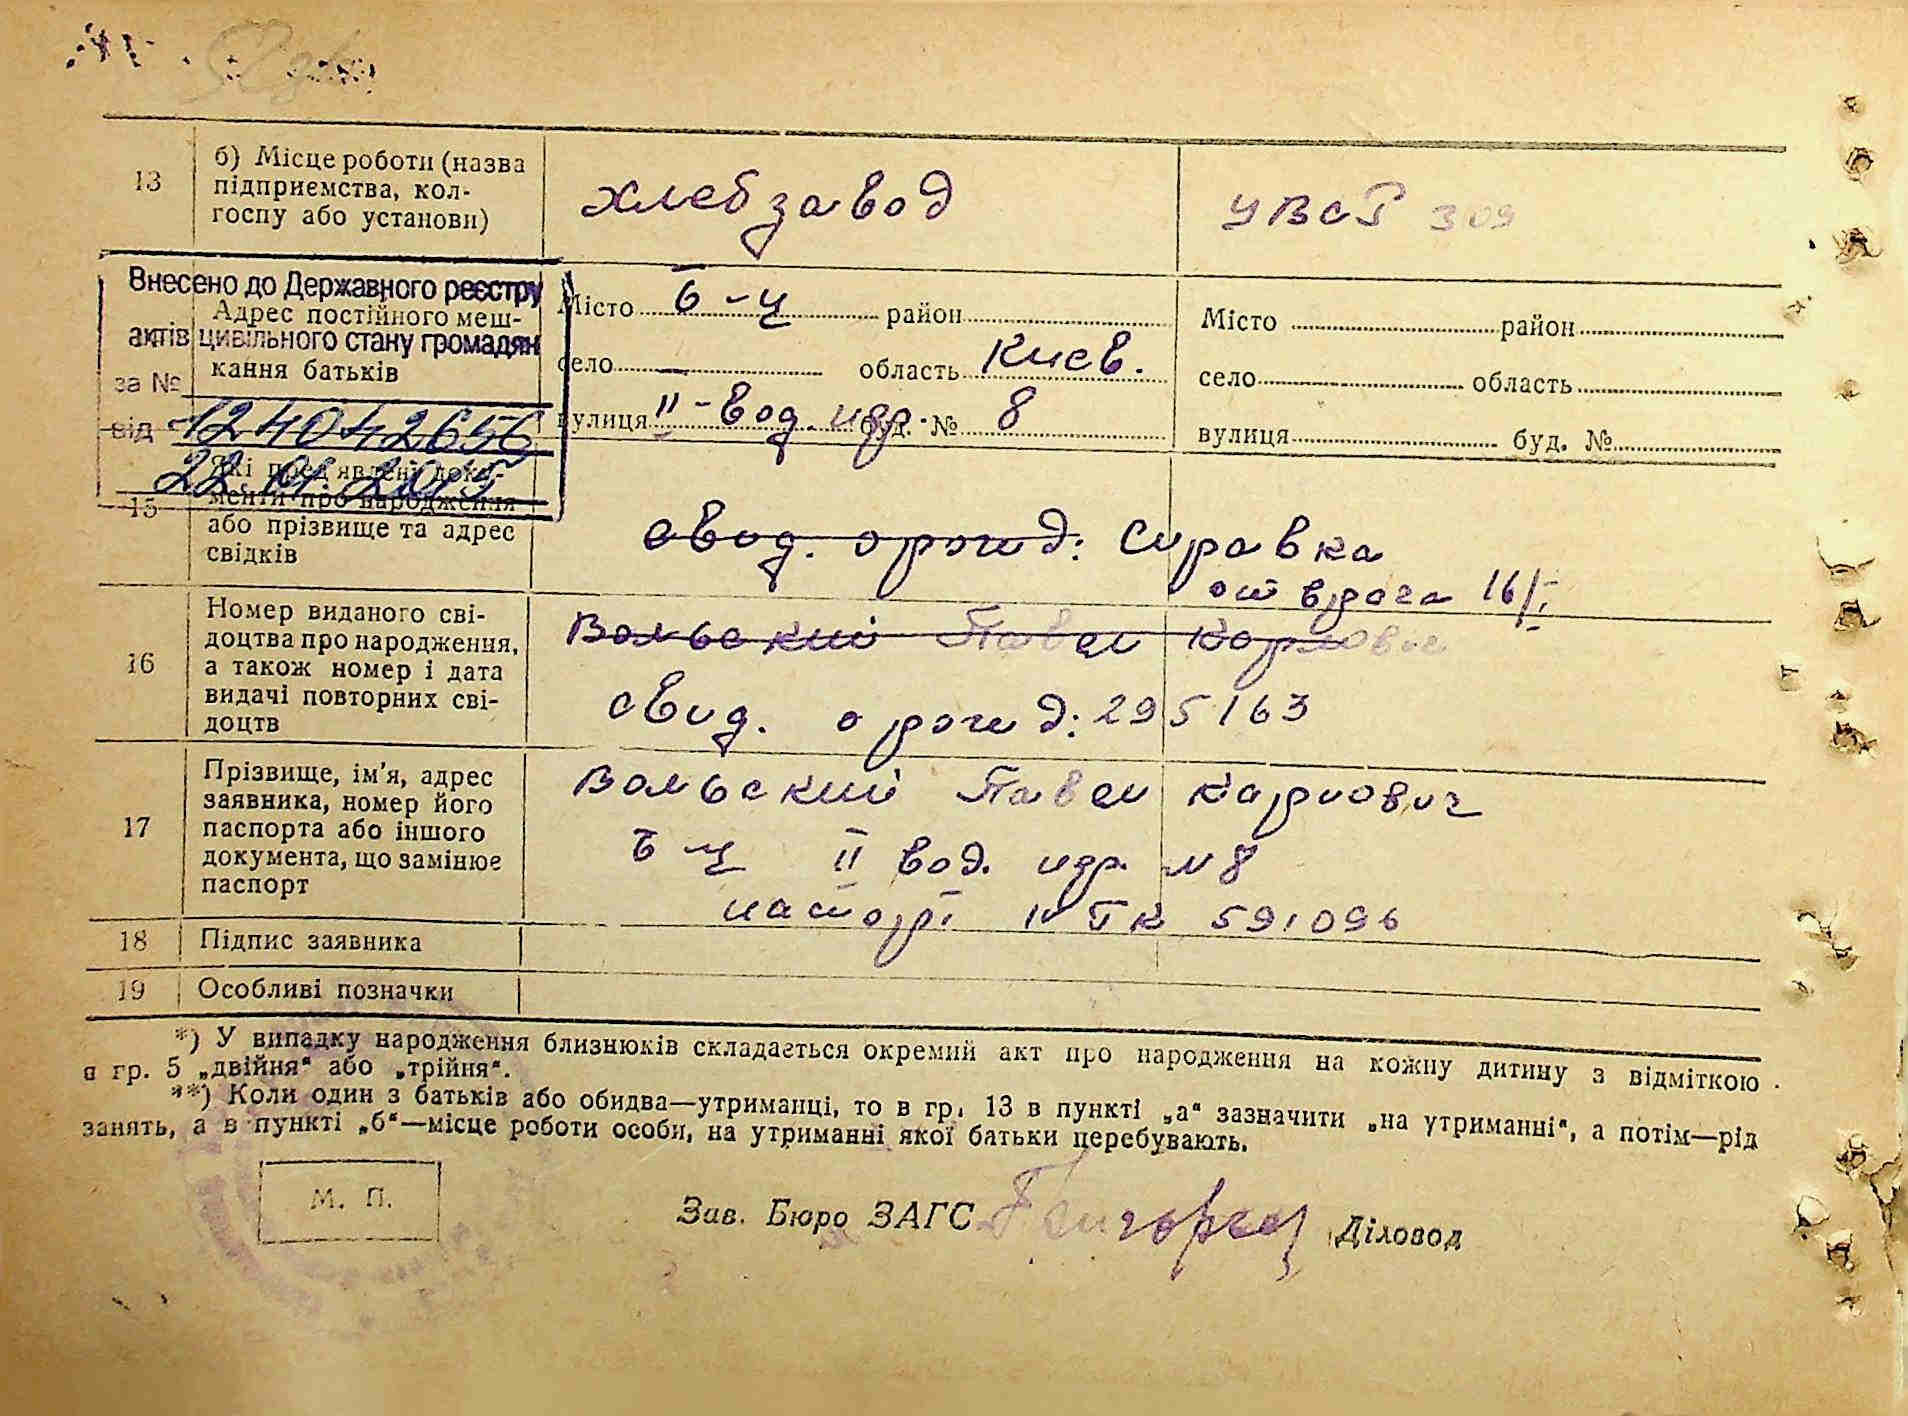 13
б) Місце роботи (назва
підприємства, кол-
госпу або установи)
хлебзавод
УВСР 309
Внесено до Державного реєстру
актів цивільного стану громадян
за № 
від 124042656
22. 01. 2015
Адрес постійного меш-
кання батьків
Місто Б-Ц район
село — область Киев.
вулиця II-вод. пер. буд. № 8
Місто район
село область
вулиця буд. №
15
Які пред'явлені доку-
менти про народження
або прізвище та адрес
свідків
свид. о рожд: Справка
от врача 16/I
16
Номер виданого сві-
доцтва про народження,
а також номер і дата
видачі повторних сві-
доцтв
Вольский Павел Карлович
свид. о рожд: 295163
17
Прізвище, ім'я, адрес
заявника, номер його
паспорта або іншого
документа, що замінює
паспорт
Вольский Павел Карлович
Б-Ц II вод. пер. №8
паспорт IV ТК 591096
18
Підпис заявника
19
Особливі позначки
*) У випадку народження близнюків складається окремий акт про народження на кожну дитину з відміткою
в гр. 5 „двійня“ або „трійня“.
**) Коли один з батьків або обидва—утриманці, то в гр. 13 в пункті „а“ зазначити „на утриманні“, а потім—рід
занять, а в пункті „б“—місце роботи особи, на утриманні якої батьки перебувають.
М. П.
Зав. Бюро ЗАГС
Діловод